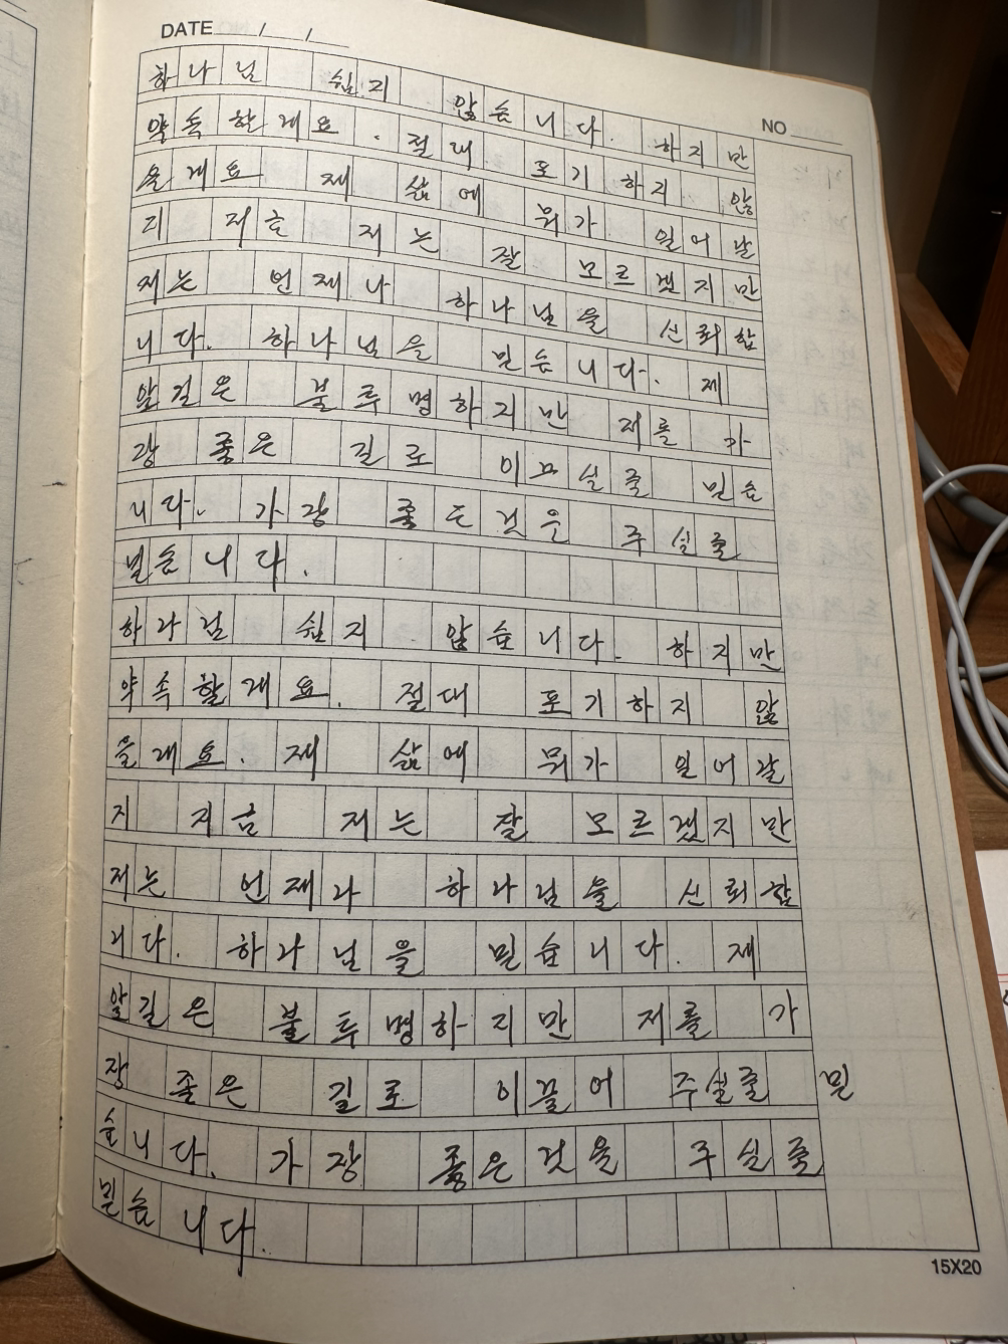 DATE / /
NO
하나님 쉽지 않습니다. 하지만
약속할게요. 절대 포기하지 않
을게요 제 삶에 뭐가 일어날
지 지금 저는 잘 모르겠지만
저는 언제나 하나님을 신뢰합
니다. 하나님을 믿습니다. 제
앞길은 불투명하지만 저를 가
장 좋은 길로 이끄실줄 믿습
니다. 가장 좋은것은 주실줄
믿습니다.
하나님 쉽지 않습니다. 하지만
약속할게요. 절대 포기하지 않
을래요. 제 삶에 뭐가 일어날
지 지금 저는 잘 모르겠지만
저는 언제나 하나님을 신뢰합
니다. 하나님을 믿습니다. 제
앞길은 불투명하지만 저를 가
장 좋은 길로 이끌어 주실줄 믿
습니다. 가장 좋은것을 주실줄
믿습니다.
15X20